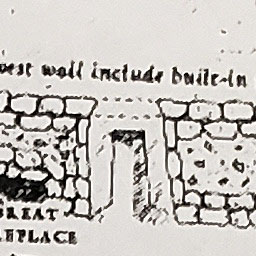 west wall include built-in
GREAT
FIREPLACE